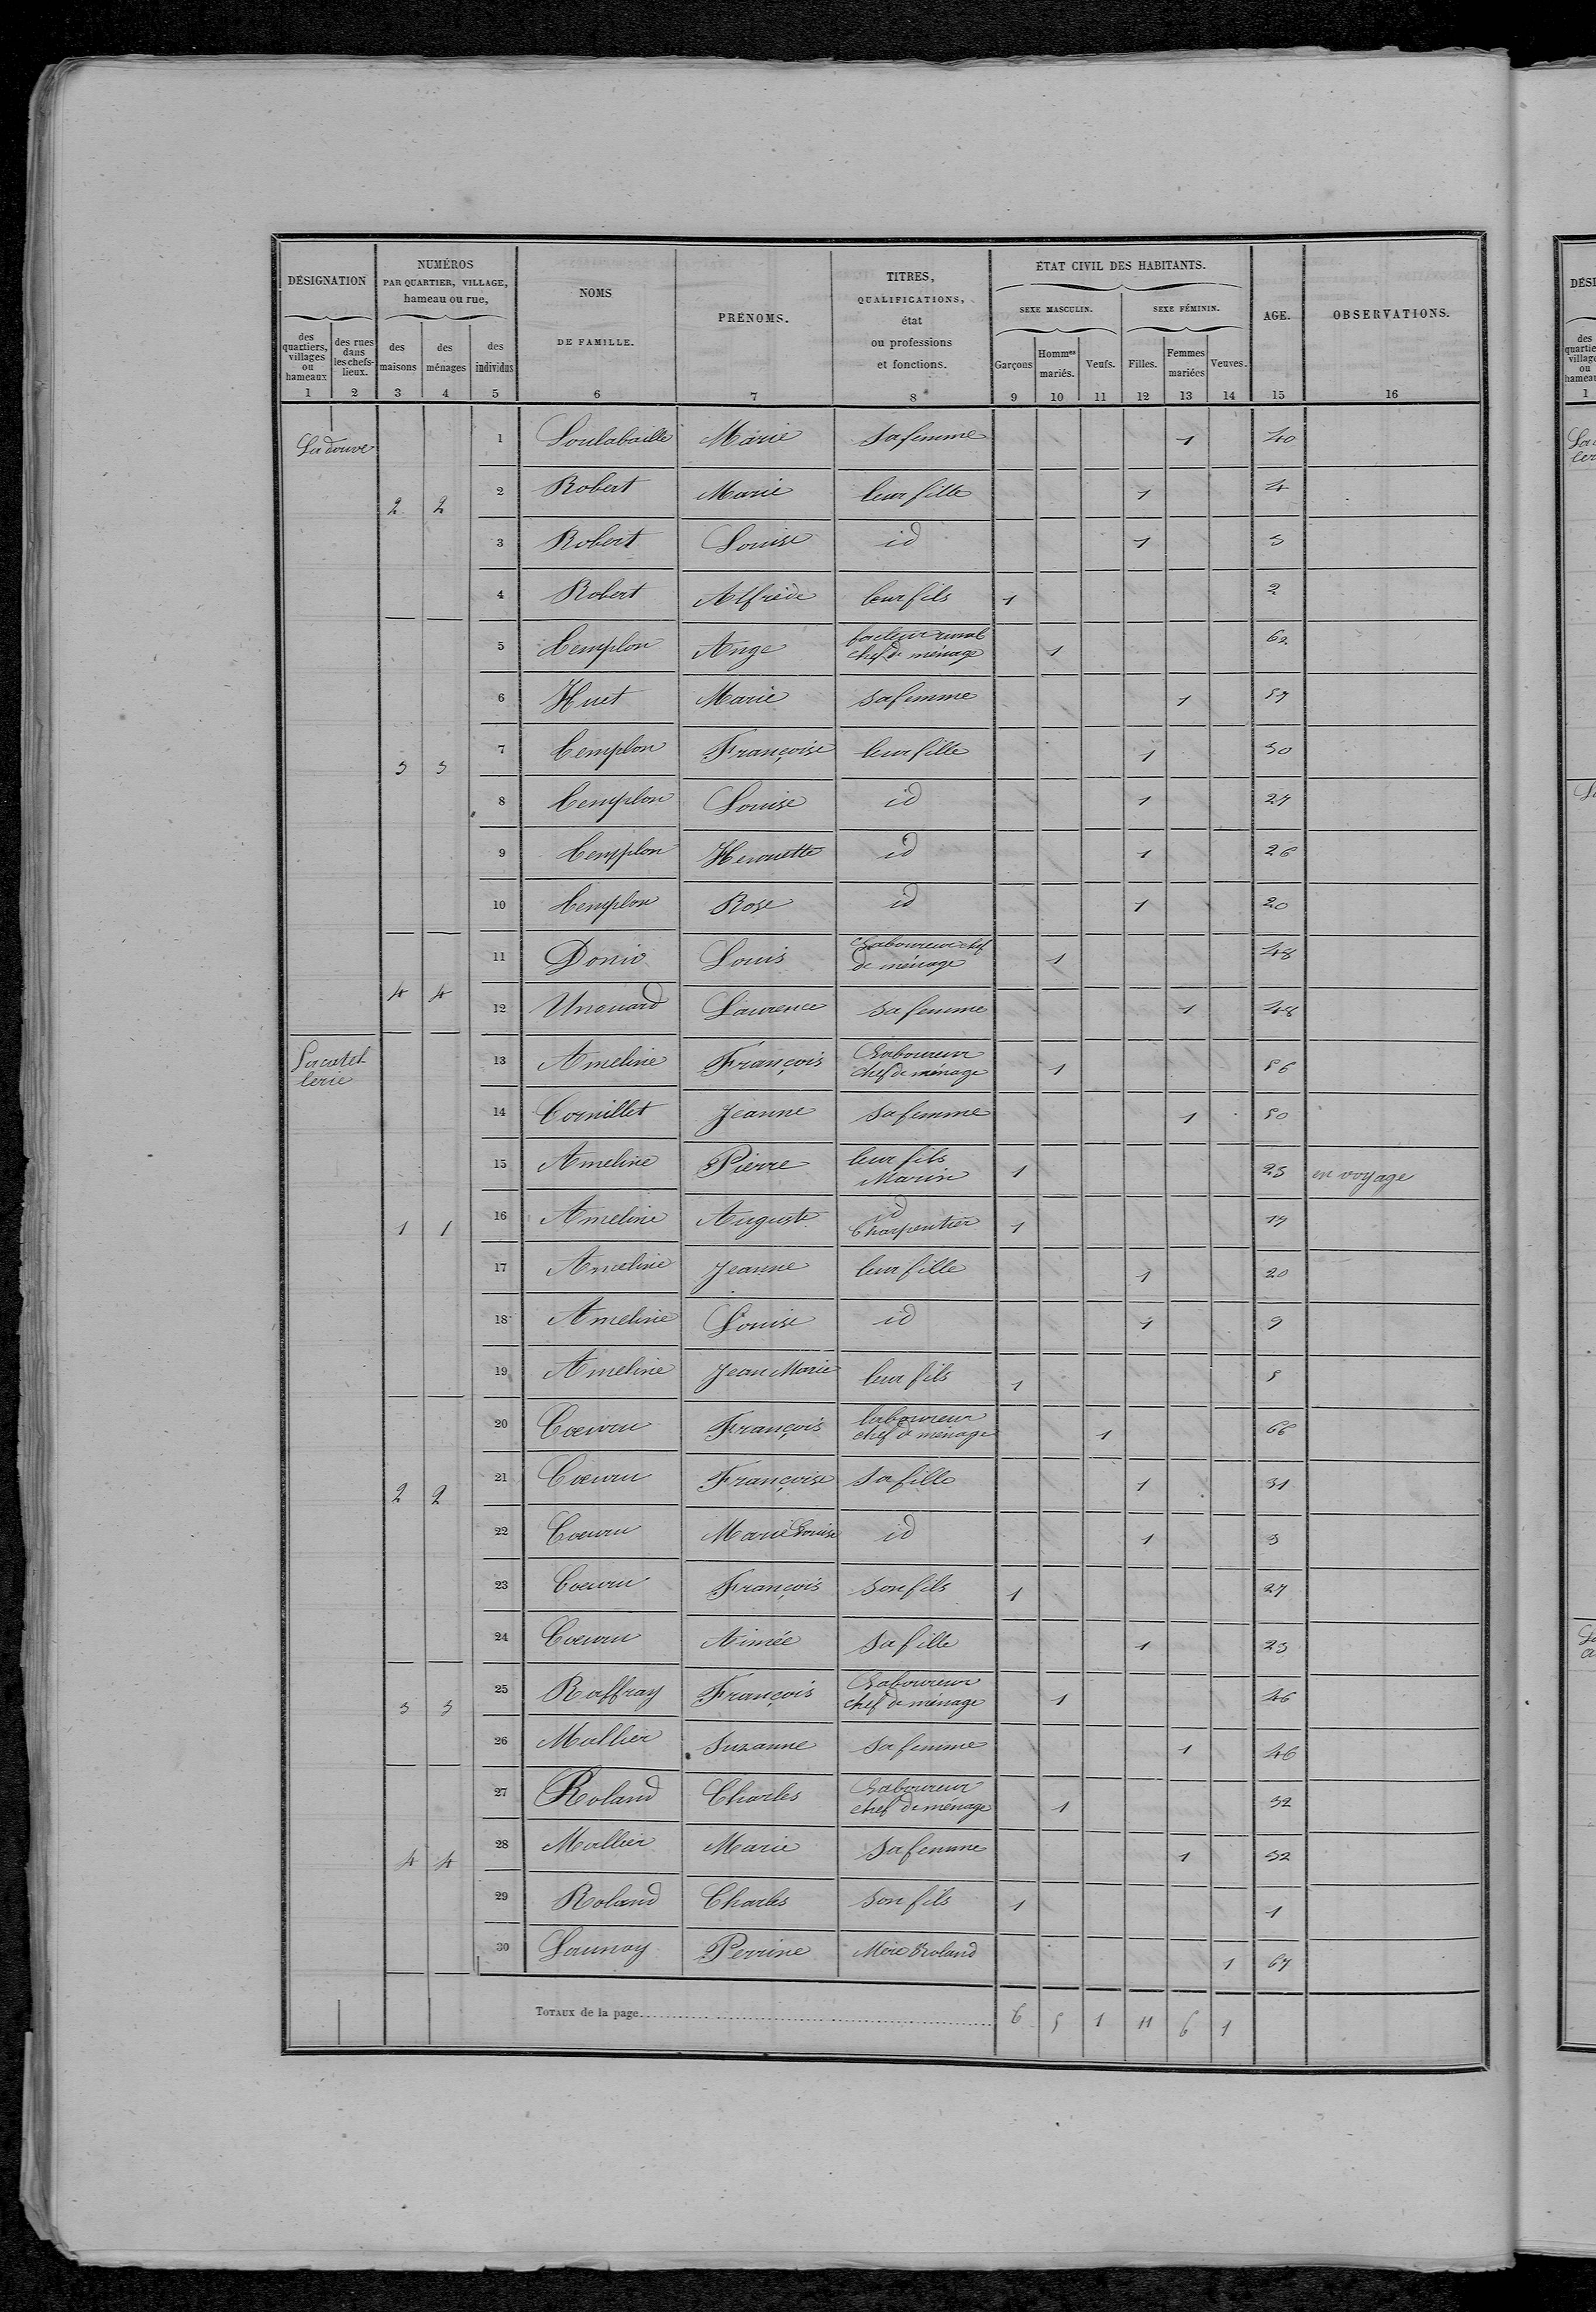 DÉSIGNATION
NUMÉROS
PAR QUARTIER, VILLAGE,
hameau ou rue,
NOMS
DE FAMILLE.
PRÉNOMS.
TITRES,
QUALIFICATIONS,
état
ou professions
et fonctions.
ÉTAT CIVIL DES HABITANTS.
SEXE MASCULIN.
SEXE FÉMININ.
AGE.
OBSERVATIONS.
des quartiers, villages ou hameaux
des rues dans les chefs-lieux.
des maisons
des ménages
des individus
Garçons
Hommes mariés.
Veufs.
Filles.
Femmes mariées
Veuves.
1 2 3 4 5 6 7 8 9 10 11 12 13 14 15 16
La douve 1 Soulabaille Marie sa femme 1 40
2 2 2 Robert Marie leur fille 1 4
3 Robert Louise id 1 3
4 Robert Alfred leur fils 1 2
5 Templon Ange facteur rural chef de ménage 1 62
6 Huet Marie sa femme 1 57
3 3 7 Templon Françoise leur fille 1 30
8 Templon Louise id 1 27
9 Templon Henriette id 1 26
10 Templon Rose id 1 20
11 Donio Louis Laboureur chef de ménage 1 48
4 4 12 Laurence sa femme 1 48
La catel
lerie 13 Ameline François Laboureur chef de ménage 1 56
14 Cornillet Jeanne sa femme 1 50
15 Ameline Pierre leur fils Marin 1 23 en voyage
1 1 16 Ameline Auguste id Charpentier 1 17
17 Ameline Jeanne leur fille 1 20
18 Ameline Louise id 1 9
19 Ameline Jean Marie leur fils 1 5
20 Coeuru François laboureur chef de ménage 1 66
2 2 21 Coeuru Françoise sa fille 1 31
22 Coeuru Marie Louise id 1 3
23 Coeuru François son fils 1 27
24 Coeuru Aimée sa fille 1 23
3 3 25 Raffray François Laboureur chef de ménage 1 46
26 Mallier Suzanne sa femme 1 46
27 Roland Charles Laboureur chef de ménage 1 32
4 4 28 Mallier Marie sa femme 1 32
29 Roland Charles son fils 1 1
30 Launay Perrine Mère Roland 1 67
TOTAUX de la page 6 5 1 11 6 1